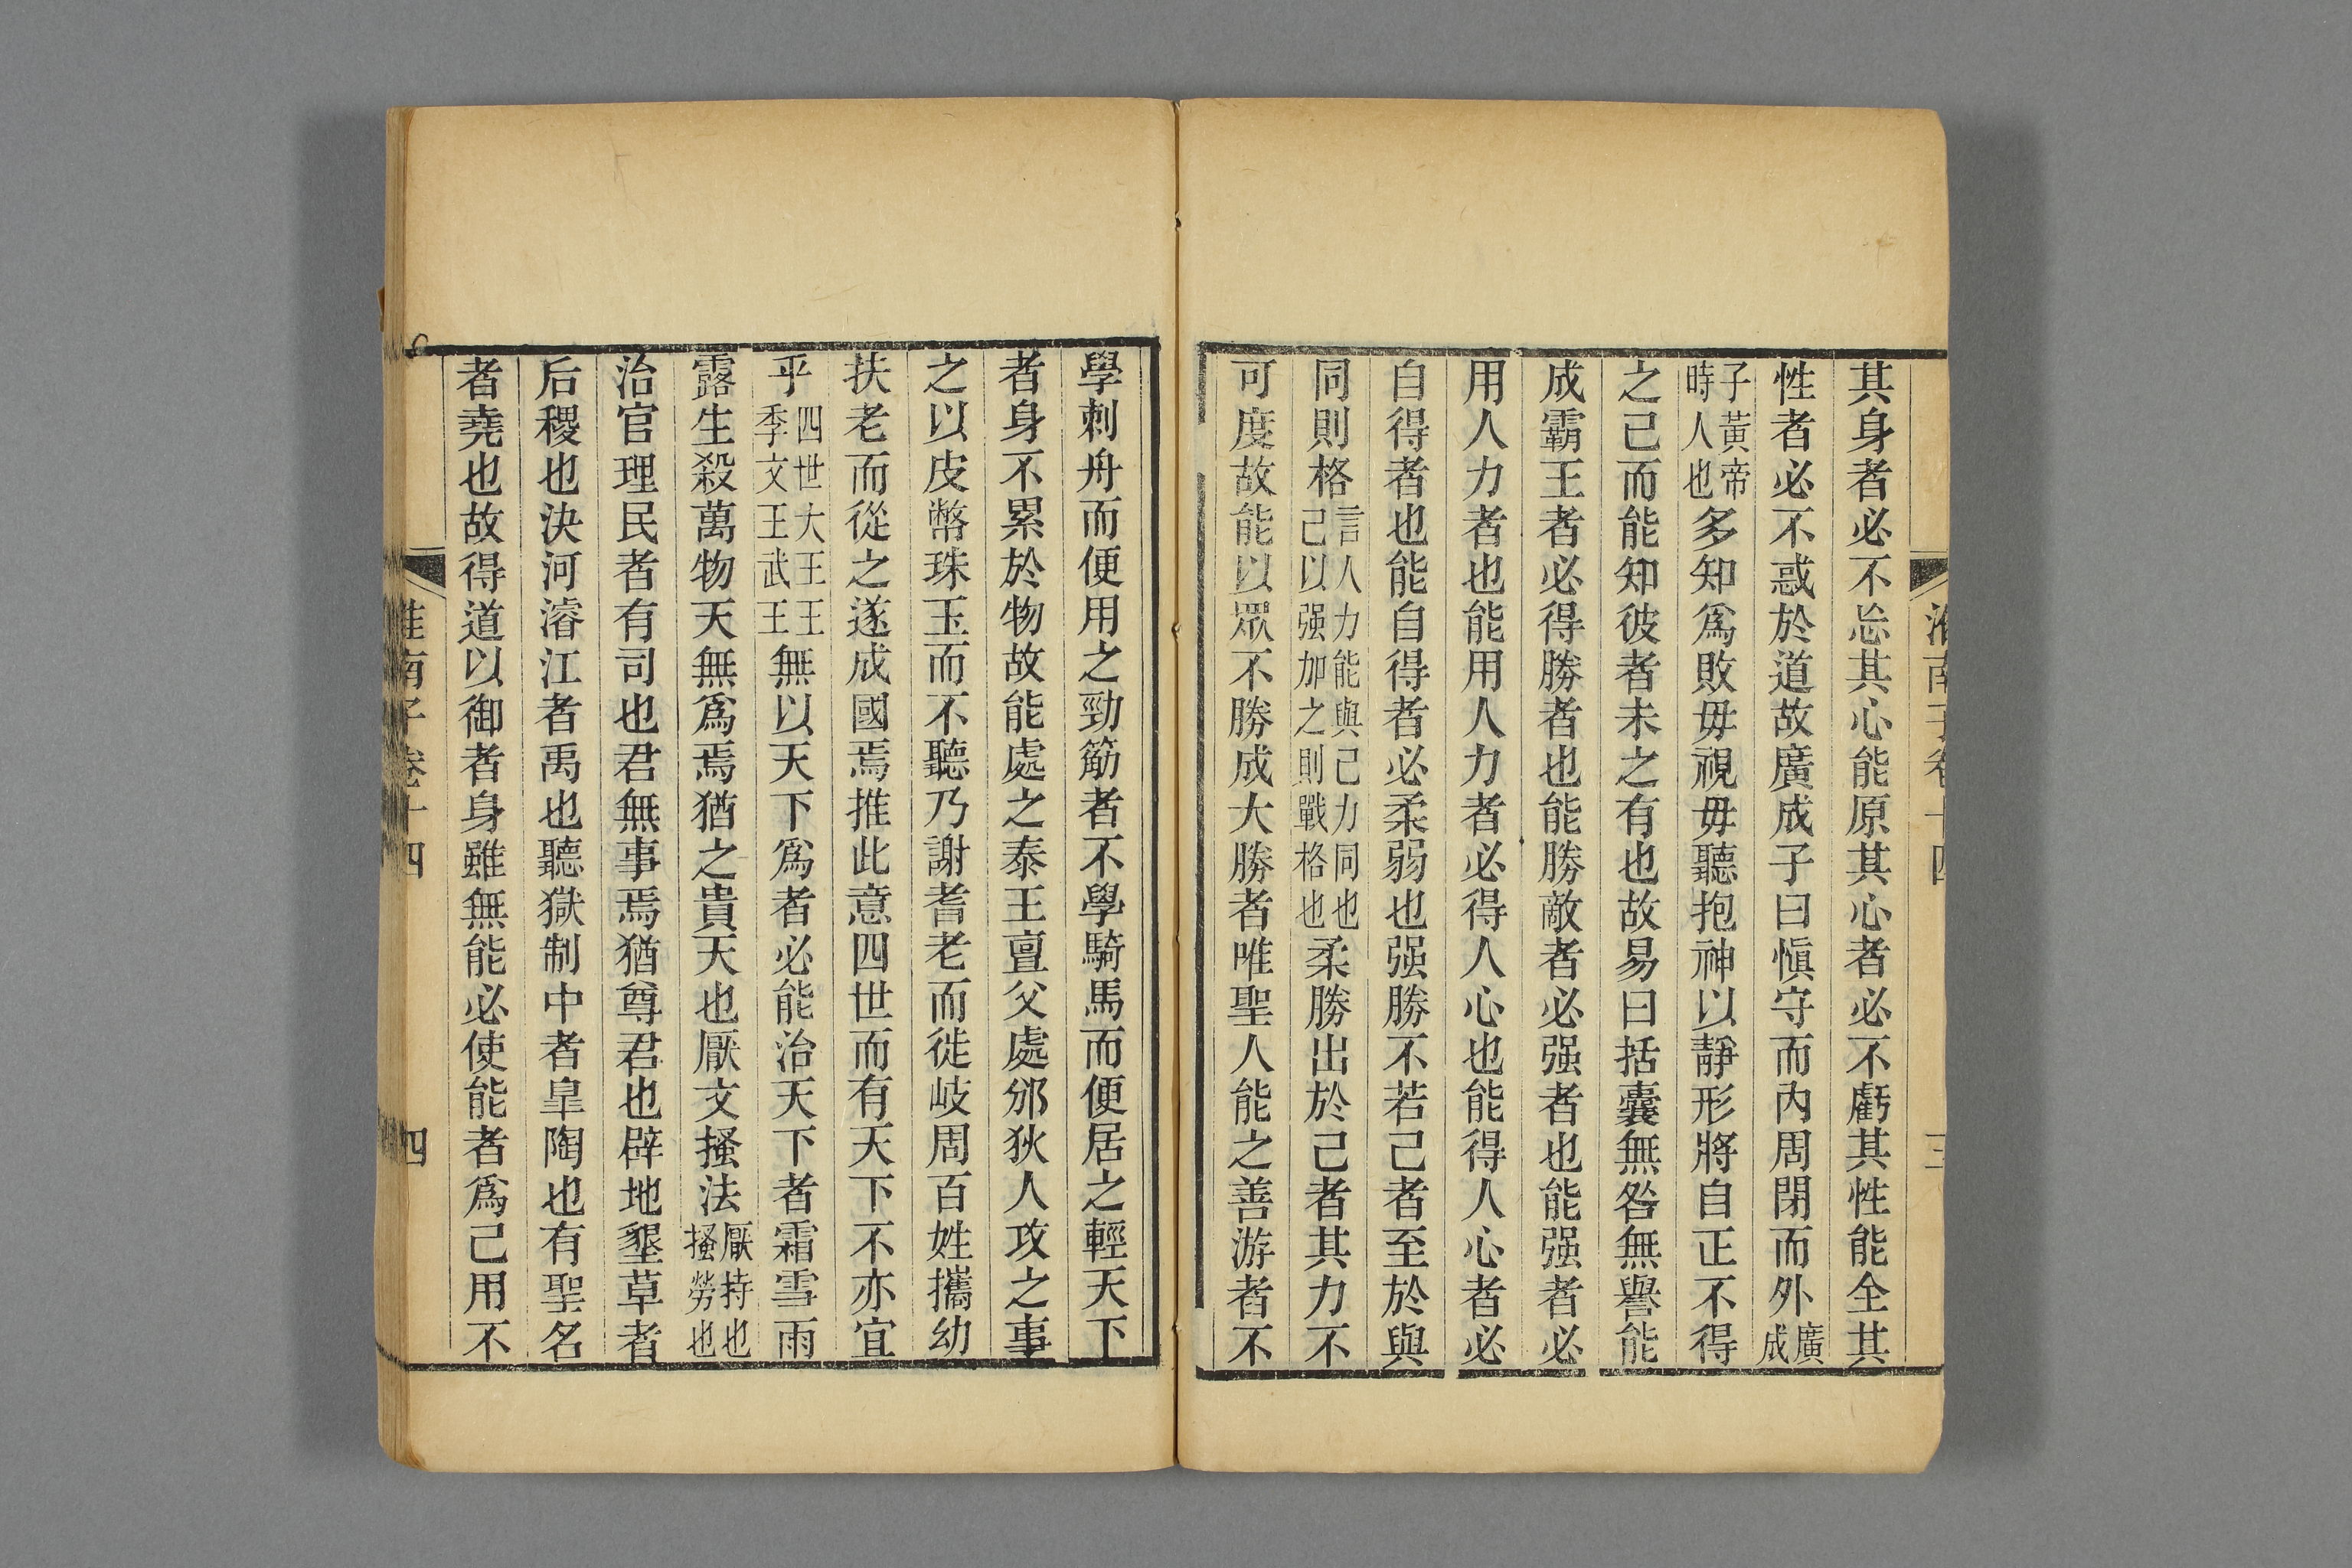 淮南子卷十四 三
其身者必不忘其心能原其心者必不虧其性能全其
性者必不惑於道故廣成子曰愼守而內周閉而外廣成
子黃帝時人也多知爲敗毋視毋聽抱神以靜形將自正不得
之己而能知彼者未之有也故易曰括囊無咎無譽能
成霸王者必得勝者也能勝敵者必强者也能强者必
用人力者也能用人力者必得人心也能得人心者必
自得者也能自得者必柔弱也强勝不若己者至於與
同則格言人力能與己力同也己以强加之則戰格也柔勝出於己者其力不
可度故能以眾不勝成大勝者唯聖人能之善游者不
學刺舟而便用之勁筋者不學騎馬而便居之輕天下
者身不累於物故能處之泰王亶父處邠狄人攻之事
之以皮幣珠玉而不聽乃謝耆老而徙岐周百姓攜幼
扶老而從之遂成國焉推此意四世而有天下不亦宜
乎四世大王王季文王武王無以天下爲者必能治天下者霜雪雨
露生殺萬物天無爲焉猶之貴天也厭文搔法厭持也搔勞也
治官理民者有司也君無事焉猶尊君也辟地墾草者
后稷也決河濬江者禹也聽獄制中者皐陶也有聖名
者堯也故得道以御者身雖無能必使能者爲己用不
淮南子卷十四 四